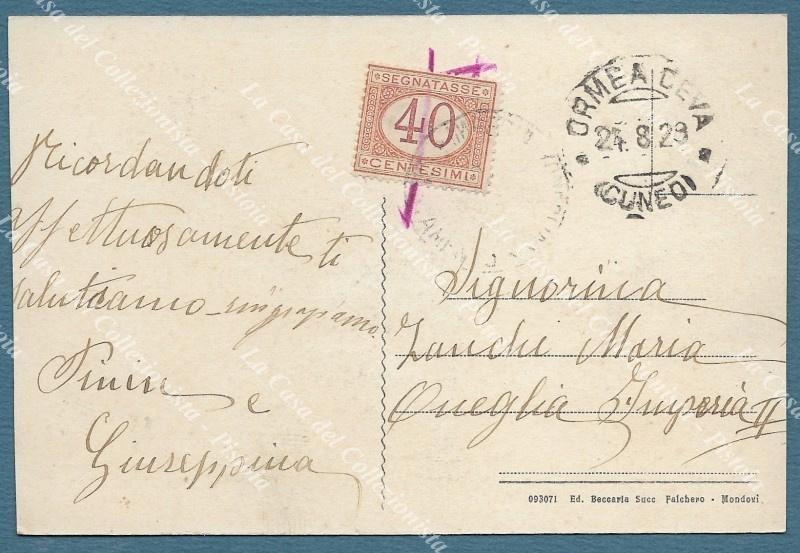 SEGNATASSE
40
CENTESIMI
ORMEA CEVA
24.8.28
(CUNEO)
Ricordandoti
affettuosamente ti
salutiamo
Pinin e
Giuseppina
Signorina
Zanchi Maria
Oneglia Imperia II
093071 Ed. Beccaria Succ Falchero - Mondovi
La Casa del Collezionista - Pistoia